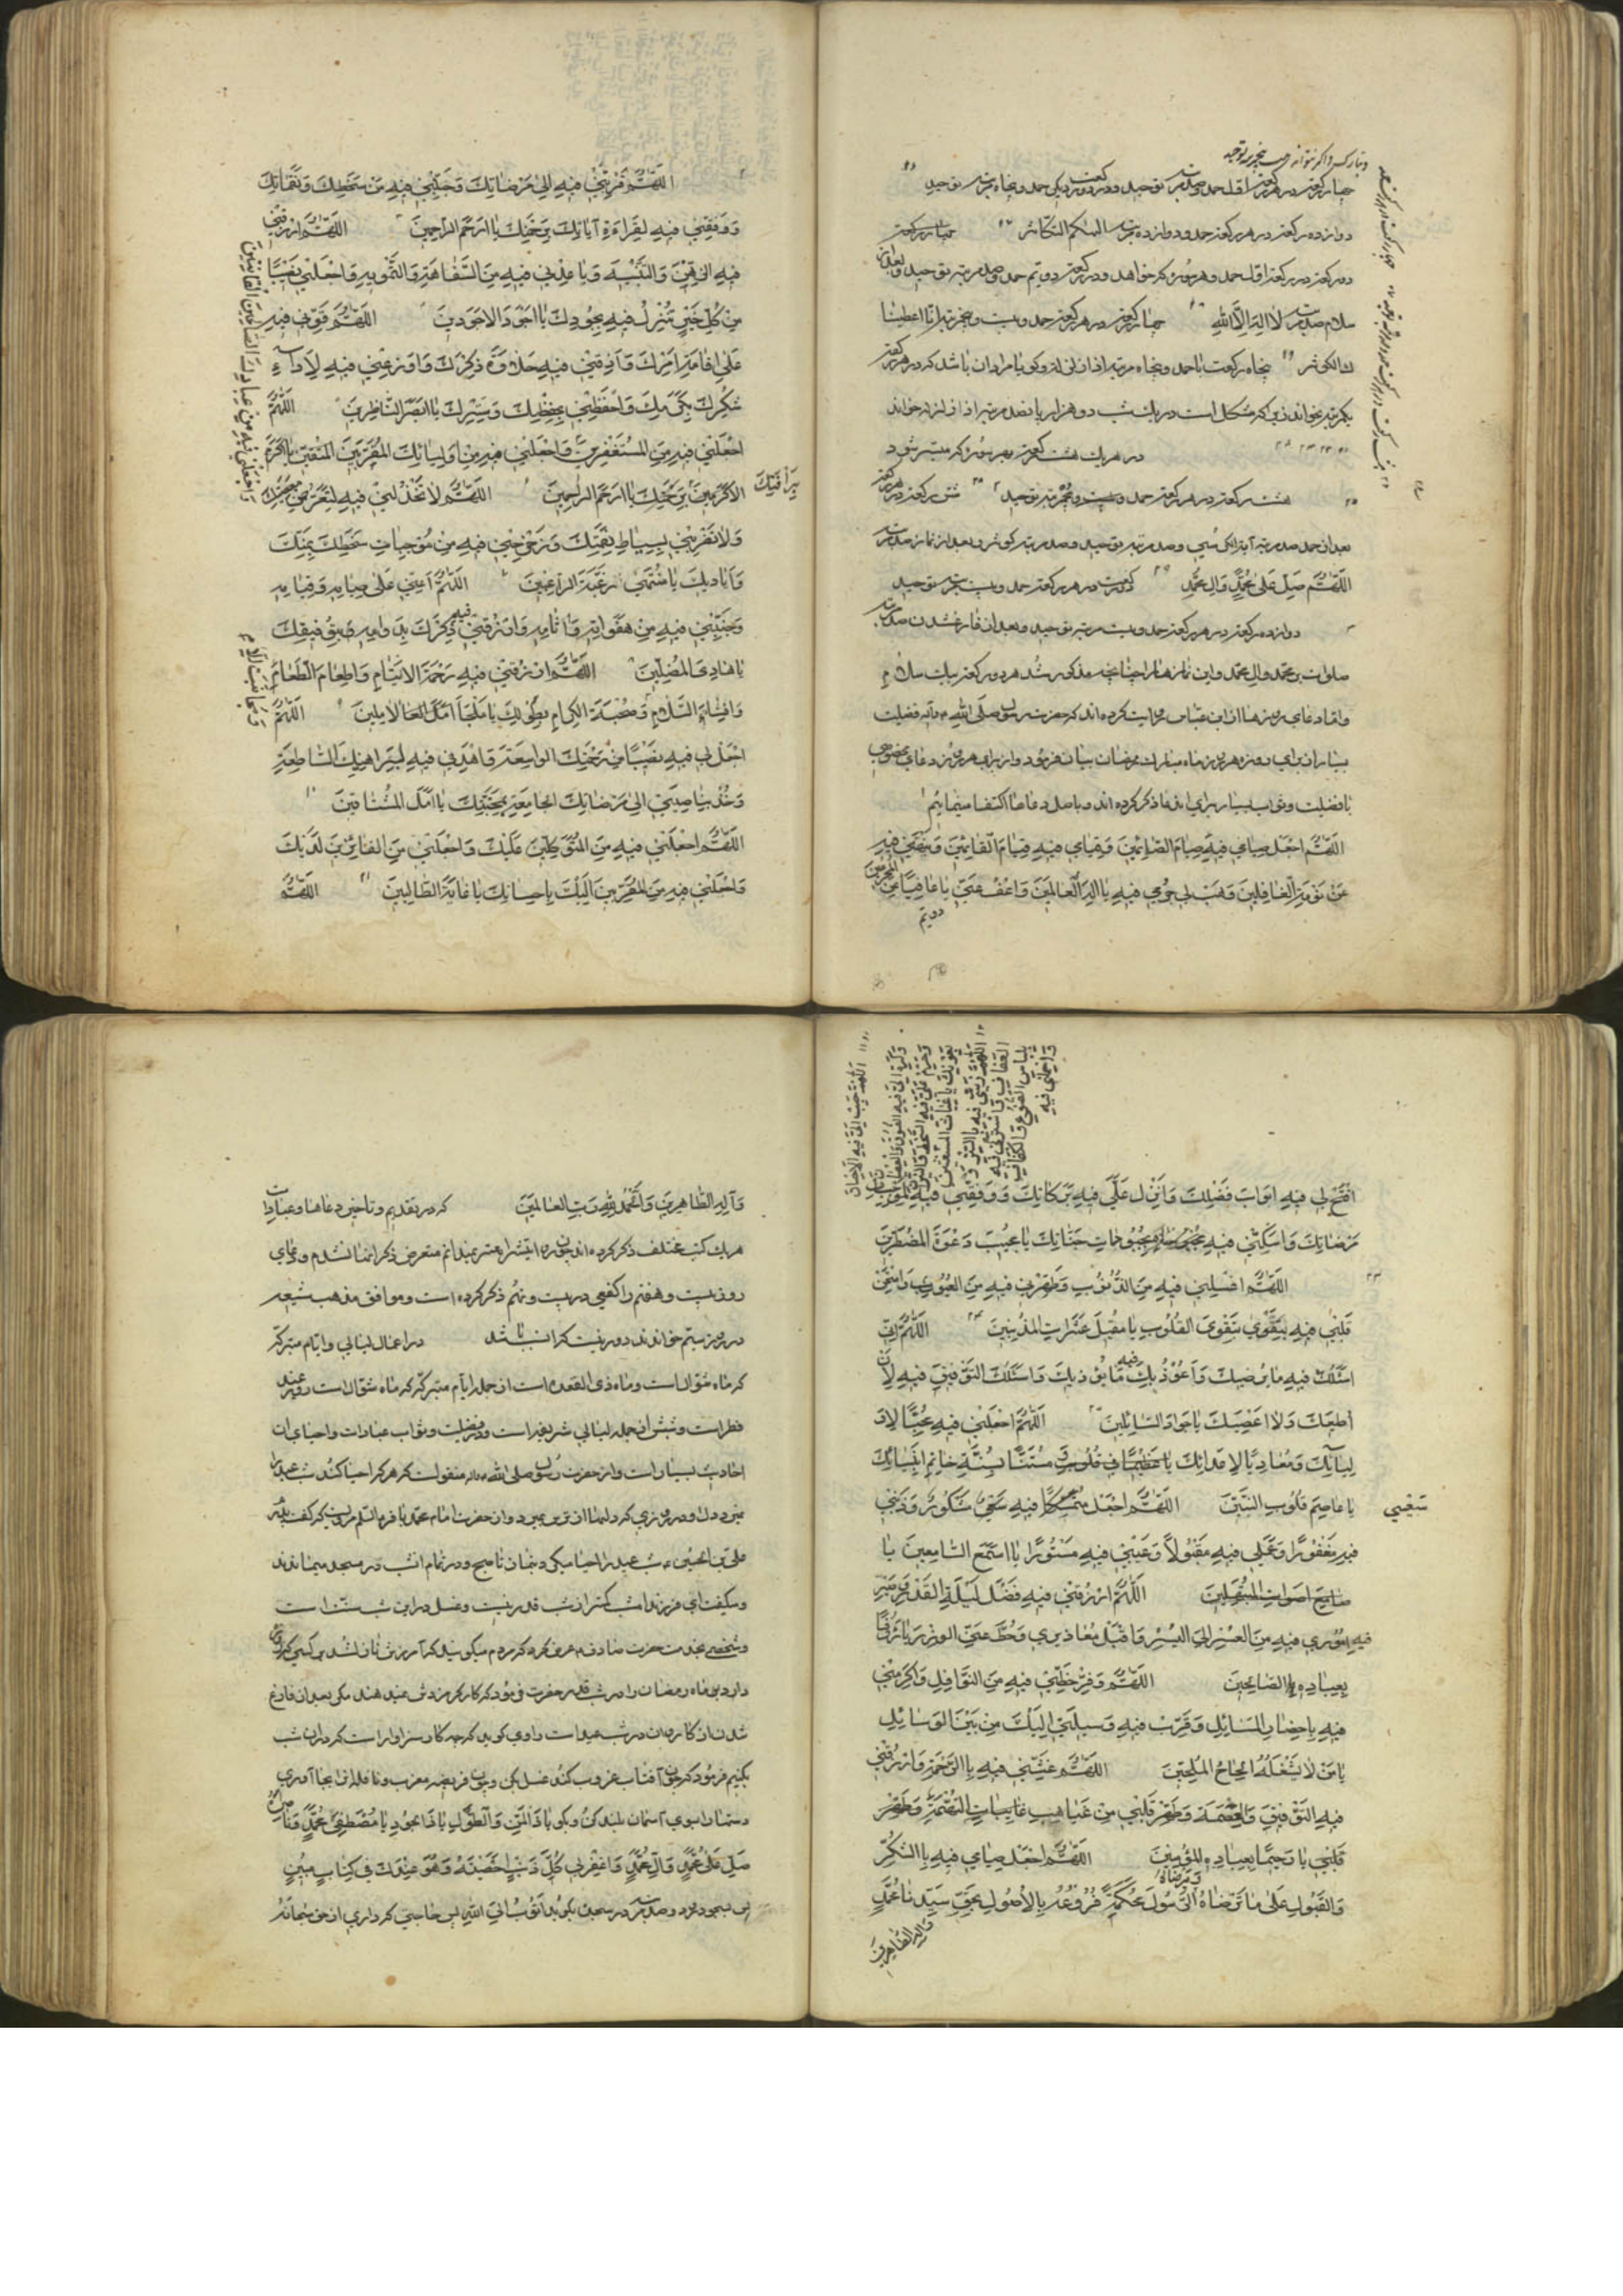 چهار رکعت در هر رکعت اول حمد و صد مرتبه توحید و در رکعت دیگر حمد و پنجاه مرتبه توحید
دوازده رکعت در هر رکعت حمد و دوازده مرتبه الهیکم التکاثر
دو رکعت در رکعت اول حمد و هر سوره که خواهد و در رکعت دویم حمد و صد مرتبه توحید و بعد از
سلام صد مرتبه لا اله الا الله چهار رکعت در هر رکعت حمد و بیست و پنج مرتبه انا اعطیناک
الکوثر پنجاه رکعت با حمد و پنجاه مرتبه اذا زلزلت و گویا مراد آن باشد که در هر رکعت
یکمرتبه بخواند زیرا که مشکل است در یک شب دو هزار و پانصد مرتبه اذا زلزله خواند
در هر یک هشت رکعت بهر سوره که میسر شود
هشت رکعت در هر رکعت حمد و پنج مرتبه توحید شش رکعت در هر رکعت
بعد از حمد صد مرتبه آیة الکرسی و صد مرتبه توحید و صد مرتبه کوثر و بعد از نماز صد مرتبه
اللّهُمَّ صَلِّ عَلی مُحَمَّدٍ وَآلِ مُحَمَّدٍ دو رکعت در هر رکعت حمد و بیست مرتبه توحید
دوازده رکعت در هر رکعت حمد و بیست مرتبه توحید و بعد از فارغ شدن صد مرتبه
صلوات بر محمد و آل محمد و این نمازها را چنانچه مذکور شد هر دو رکعت بیک سلام
و اما دعای روزها از ابن عباس روایت کرده اند که حضرت رسول صلی الله علیه و آله فضیلت
بسیار از برای روزه هر روز ماه مبارک رمضان بیان فرمود و از برای هر روز دعای مخصوصی
با فضیلت و ثواب بسیار برای آن دعا ذکر کرده اند و ما باصل دعاها اکتفا مینمائیم
اللّهُمَّ اجْعَلْ صِیامی فیهِ صِیامَ الصّائِمینَ وَقِیامی فیهِ قِیامَ القائِمینَ وَنَبِّهْنی فیهِ
عَنْ نَوْمَةِ الغافِلینَ وَهَبْ لی جُرْمی فیهِ یا اِلهَ العالَمینَ وَاعْفُ عَنّی یا عافِیاً عَنِ المُجْرِمینَ
دویم
اللّهُمَّ قَرِّبْنی فیهِ اِلی مَرْضاتِکَ وَجَنِّبْنی فیهِ مِنْ سَخَطِکَ وَنَقِماتِکَ
وَوَفِّقْنی فیهِ لِقِراءَةِ آیاتِکَ بِرَحْمَتِکَ یا اَرْحَمَ الرّاحِمینَ اللّهُمَّ ارْزُقْنی
فیهِ الذِّهْنَ وَالتَّنْبیهَ وَباعِدْنی فیهِ مِنَ السَّفاهَةِ وَالتَّمْویهِ وَاجْعَلْ لی نَصیباً
مِنْ کُلِّ خَیْرٍ تُنْزِلُ فیهِ بِجُودِکَ یا اَجْوَدَ الاَجْوَدینَ اللّهُمَّ قَوِّنی فیهِ
عَلی اِقامَةِ اَمْرِکَ وَاَذِقْنی فیهِ حَلاوَةَ ذِکْرِکَ وَاَوْزِعْنی فیهِ لِاَداءِ
شُکْرِکَ بِکَرَمِکَ وَاحْفَظْنی بِحِفْظِکَ وَسَتْرِکَ یا اَبْصَرَ النّاظِرینَ اللّهُمَّ
اجْعَلْنی فیهِ مِنَ المُسْتَغْفِرینَ وَاجْعَلْنی فیهِ مِنْ اَوْلِیائِکَ المُقَرَّبینَ المُتَّقینَ یا اَکْرَمَ
الاَکْرَمینَ بِرَحْمَتِکَ یا اَرْحَمَ الرّاحِمینَ اللّهُمَّ لا تَخْذُلْنی فیهِ لِتَعَرُّضِ مَعْصِیَتِکَ
بِرَأْفَتِکَ
وَاجْعَلْنی فیهِ مِنْ عِبادِکَ الصّالِحینَ القانِتینَ
وَلا تَضْرِبْنی بِسِیاطِ نِقْمَتِکَ وَزَحْزِحْنی فیهِ مِنْ مُوجِباتِ سَخَطِکَ بِمَنِّکَ
وَاَیادیکَ یا مُنْتَهی رَغْبَةِ الرّاغِبینَ اللّهُمَّ اَعِنّی عَلی صِیامِهِ وَقِیامِهِ
وَجَنِّبْنی فیهِ مِنْ هَفَواتِهِ وَآثامِهِ وَارْزُقْنی فیهِ ذِکْرَکَ بِدَوامِهِ بِتَوْفیقِکَ
یا هادِیَ المُضِلّینَ اللّهُمَّ ارْزُقْنی فیهِ رَحْمَةَ الاَیْتامِ وَاِطْعامَ الطَّعامِ
وَاِفْشاءَ السَّلامِ وَصُحْبَةَ الکِرامِ بِطَوْلِکَ یا مَلْجَأَ اَمَلِ الآمِلینَ اللّهُمَّ
اجْعَلْ لی فیهِ نَصیباً مِنْ رَحْمَتِکَ الواسِعَةِ وَاهْدِنی فیهِ لِبَراهینِکَ السّاطِعَةِ
وَخُذْ بِناصِیَتی اِلی مَرْضاتِکَ الجامِعَةِ بِمَحَبَّتِکَ یا اَمَلَ المُشْتاقینَ
اللّهُمَّ اجْعَلْنی فیهِ مِنَ المُتَوَکِّلینَ عَلَیْکَ وَاجْعَلْنی مِنَ الفائِزینَ لَدَیْکَ
وَاجْعَلْنی فیهِ مِنَ المُقَرَّبینَ اِلَیْکَ بِاِحْسانِکَ یا غایَةَ الطّالِبینَ اللّهُمَّ
اللّهُمَّ حَبِّبْ اِلَیَّ فیهِ الاِحْسانَ
وَکَرِّهْ اِلَیَّ فیهِ الفُسُوقَ وَالعِصْیانَ
وَحَرِّمْ عَلَیَّ فیهِ السَّخَطَ وَالنّیرانَ
بِعَوْنِکَ یا غِیاثَ المُسْتَغیثینَ
اللّهُمَّ زَیِّنّی فیهِ بِالسَّتْرِ وَ
العَفافِ وَاسْتُرْنی فیهِ
بِلِباسِ القُنُوعِ وَالکَفافِ
افْتَحْ لی فیهِ اَبْوابَ فَضْلِکَ وَاَنْزِلْ عَلَیَّ فیهِ بَرَکاتِکَ وَوَفِّقْنی فیهِ لِمُوجِباتِ
مَرْضاتِکَ وَاَسْکِنّی فیهِ بُحْبُوحاتِ جَنّاتِکَ یا مُجیبَ دَعْوَةِ المُضْطَرّینَ
اللّهُمَّ اغْسِلْنی فیهِ مِنَ الذُّنُوبِ وَطَهِّرْنی فیهِ مِنَ العُیُوبِ وَامْتَحِنْ
قَلْبی فیهِ بِتَقْوَی القُلُوبِ یا مُقیلَ عَثَراتِ المُذْنِبینَ اللّهُمَّ اِنّی
اَسْئَلُکَ فیهِ ما یُرْضیکَ وَاَعُوذُ بِکَ فیهِ مِمّا یُؤْذیکَ وَاَسْئَلُکَ التَّوْفیقَ فیهِ لِاَنْ
اُطیعَکَ وَلا اَعْصِیَکَ یا جَوادَ السّائِلینَ اللّهُمَّ اجْعَلْنی فیهِ مُحِبّاً لِاَوْ
لِیائِکَ وَمُعادِیاً لِاَعْدائِکَ مُسْتَنّاً بِسُنَّةِ خاتَمِ اَنْبِیائِکَ
یا عاصِمَ قُلُوبِ النَّبِیّینَ اللّهُمَّ اجْعَلْ سَعْیی فیهِ مَشْکُوراً وَذَنْبی
سَعْیی
فیهِ مَغْفُوراً وَعَمَلی فیهِ مَقْبُولاً وَعَیْبی فیهِ مَسْتُوراً یا اَسْمَعَ السّامِعینَ
اللّهُمَّ ارْزُقْنی فیهِ فَضْلَ لَیْلَةِ القَدْرِ وَصَیِّرْ
فیهِ اُمُوری فیهِ مِنَ العُسْرِ اِلَی الیُسْرِ وَاقْبَلْ مَعاذیری وَحُطَّ عَنّی الوِزْرَ یا رَؤُفاً
بِعِبادِهِ الصّالِحینَ اللّهُمَّ وَفِّرْ حَظّی فیهِ مِنَ النَّوافِلِ وَاَکْرِمْنی
فیهِ بِاِحْضارِ المَسائِلِ وَقَرِّبْ فیهِ وَسیلَتی اِلَیْکَ مِنْ بَیْنِ الوَسائِلِ
یا مَنْ لا یَشْغَلُهُ اِلْحاحُ المُلِحّینَ اللّهُمَّ غَشِّنی فیهِ بِالرَّحْمَةِ وَارْزُقْنی
فیهِ التَّوْفیقَ وَالعِصْمَةَ وَطَهِّرْ قَلْبی مِنْ غَیاهِبِ التُّهَمَةِ
یا رَحیماً بِعِبادِهِ المُؤْمِنینَ اللّهُمَّ اجْعَلْ صِیامی فیهِ بِالشُّکْرِ
وَالقَبُولِ عَلی ما تَرْضاهُ وَیَرْضاهُ الرَّسُولُ مُحْکَمَةً فُرُوعُهُ بِالاُصُولِ بِحَقِّ سَیِّدِنا مُحَمَّدٍ
وَآلِهِ الطّاهِرینَ
وَآلِهِ الطّاهِرینَ وَالحَمْدُ لِلّهِ رَبِّ العالَمینَ که در تقدیم و تاخیر دعاها و عبادات
هر یک کتب مختلف ذکر کرده اند چون متعرض ذکر آنها نشدم و دعای
روز بیست و هفتم را کفعمی در بیست و نهم ذکر کرده است و موافق مذهب شیعه
در روز بیستم خواندند دور نیست که انسب باشد در اعمال لیالی و ایام متبرکه
که ماه شوال است و ماه ذی القعده است از جمله ایام متبرکه که ماه شوال است روز عید
فطر است و شبش از جمله لیالی شریفه است و در فضیلت و ثواب عبادات و احیای آن
احادیث بسیار است و از حضرت رسول صلی الله علیه و آله منقولست که هر که احیا کند شب عید را
نمیرد دل او در روزی که دلها از ترس بمیرد و از حضرت امام محمد باقر علیه السلم مرویست که گفت پدرم
علی بن الحسین شب عید را احیا میکرد بنماز تا صبح و در تمام آنشب در مسجد میماندند
و میگفت ای فرزند امشب کمتر از شب قدر نیست و غسل در این شب سنت است
و شخصی بخدمت حضرت صادق عرض کرد که مردم میگویند که آمرزش نازل میشود بر کسی که روزه
دارد بر ماه رمضان را در شب قدر حضرت فرمود که کارگر مزدش عید هند مگر بعد از فارغ
شدن از کار و آن در شب عید است راوی گوید که چه کار سزاوار است که در آن شب
بکنیم فرمود که چون آفتاب غروب کند غسل بکن و چون فریضه مغرب و نافله آن بجا آوری
دستها را بسوی آسمان بلند کن و بگو یا ذَا المَنِّ وَالطَّوْلِ یا ذَا الجُودِ یا مُصْطَفِیَ مُحَمَّدٍ وَناصِرَهُ
صَلِّ عَلی مُحَمَّدٍ وَآلِ مُحَمَّدٍ وَاغْفِرْ لی کُلَّ ذَنْبٍ اَحْصَیْتَهُ وَهُوَ عِنْدَکَ فی کِتابٍ مُبینٍ
پس بسجود میرود و صد مرتبه در سجده بگوید اَتُوبُ اِلَی اللّهِ پس حاجتی که داری از حق سبحانه